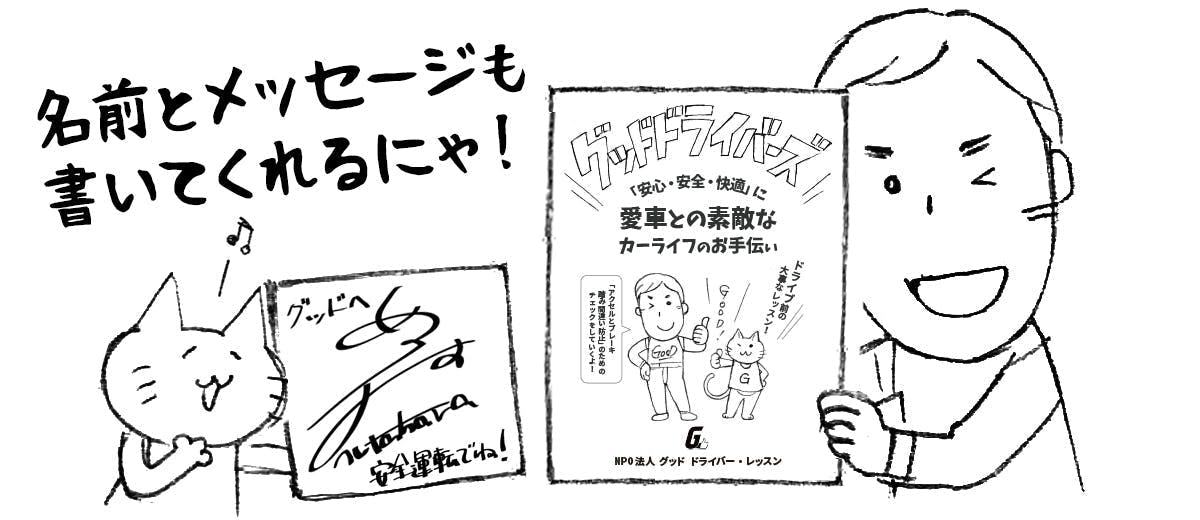 名前とメッセージも
書いてくれるにゃ！
グッドへ
安全運転でね！
グッドドライバーズ
「安心・安全・快適」に
愛車との素敵な
カーライフのお手伝い
「アクセルとブレーキ
踏み間違い防止」のための
チェックをしていくよー！
GOOD！
ドライブ前の
大事なレッスン！
GOOD
G
G
NPO法人 グッド ドライバー・レッスン